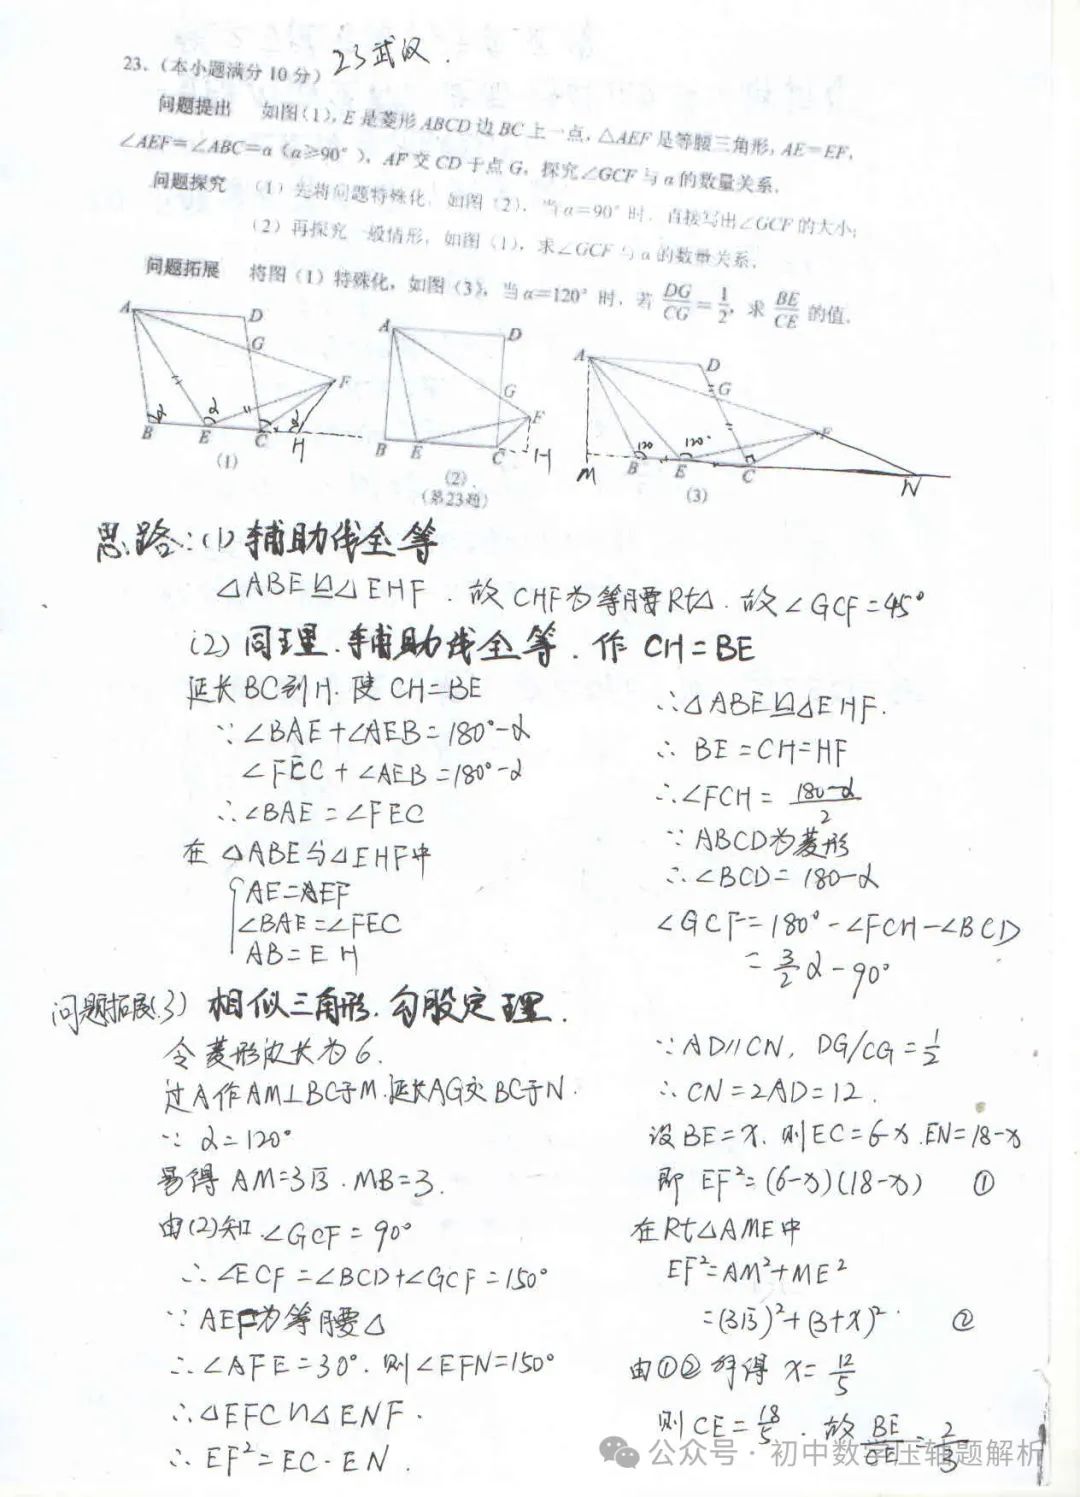 23武汉.
23.(本小题满分10分)
问题提出 如图(1),E是菱形ABCD边BC上一点,△AEF是等腰三角形,AE=EF,
∠AEF=∠ABC=α(α≥90°),AF交CD于点G,探究∠GCF与α的数量关系.
问题探究 (1)先将问题特殊化,如图(2),当α=90°时,直接写出∠GCF的大小;
(2)再探究一般情形,如图(1),求∠GCF与α的数量关系.
问题拓展 将图(1)特殊化,如图(3),当α=120°时,若DG/CG=1/2,求BE/CE的值.
A D G F B E C H α α α
(1)
A D G F B E C H
(2)
(第23题)
A D G F M B E C N 120 120°
(3)
思路:(1)辅助线全等
△ABE≌△EHF.故CHF为等腰Rt△.故∠GCF=45°
(2)同理.辅助线全等.作CH=BE
延长BC到H.使CH=BE
∵∠BAE+∠AEB=180°-α
∠FEC+∠AEB=180°-α
∴∠BAE=∠FEC
在△ABE与△EHF中
AE=AEF
∠BAE=∠FEC
AB=EH
∴△ABE≌△EHF.
∴BE=CH=HF
∴∠FCH=(180-α)/2
∵ABCD为菱形
∴∠BCD=180-α
∠GCF=180°-∠FCH-∠BCD
=3/2α-90°
问题拓展(3)相似三角形.勾股定理.
令菱形边长为6.
过A作AM⊥BC于M.延长AG交BC于N.
∵α=120°
易得AM=3√3.MB=3.
由(2)知.∠GCF=90°
∴∠ECF=∠BCD+∠GCF=150°
∵AEF为等腰△
∴∠AFE=30°.则∠EFN=150°
∴△EFC∽△ENF.
∴EF²=EC·EN.
∵AD//CN,DG/CG=1/2
∴CN=2AD=12.
设BE=x.则EC=6-x.EN=18-x
即EF²=(6-x)(18-x) ①
在Rt△AME中
EF²=AM²+ME²
=(3√3)²+(3+x)² ②
由①②解得x=12/5
则CE=18/5.故BE/CE=2/3
公众号·初中数学压轴题解析